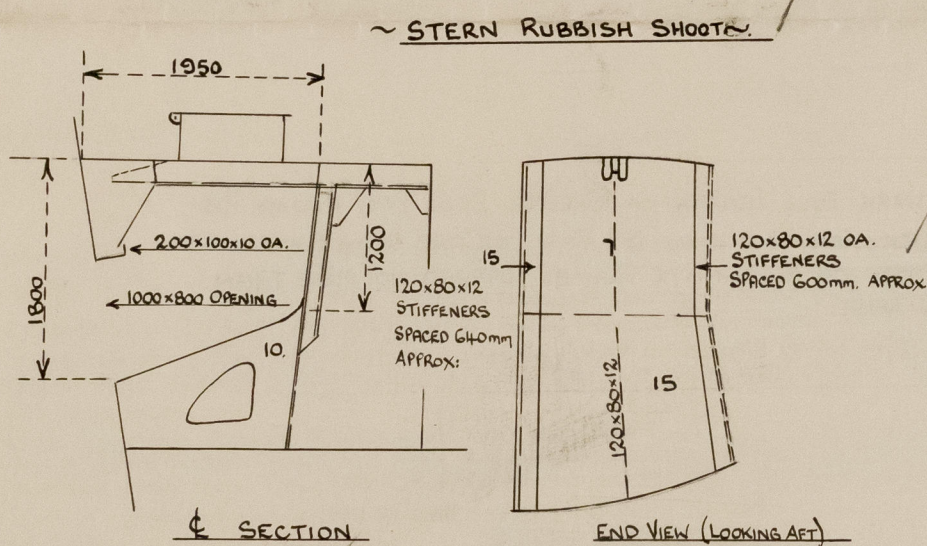 ~ STERN RUBBISH SHOOT ~.
1950
200x100x10 OA.
1000x800 OPENING
1800
1200
10.
120x80x12
STIFFENERS
SPACED 640mm
APPROX:
15
120x80x12 OA.
STIFFENERS
SPACED 600mm. APPROX
120x80x12
15
℄ SECTION
END VIEW (LOOKING AFT)